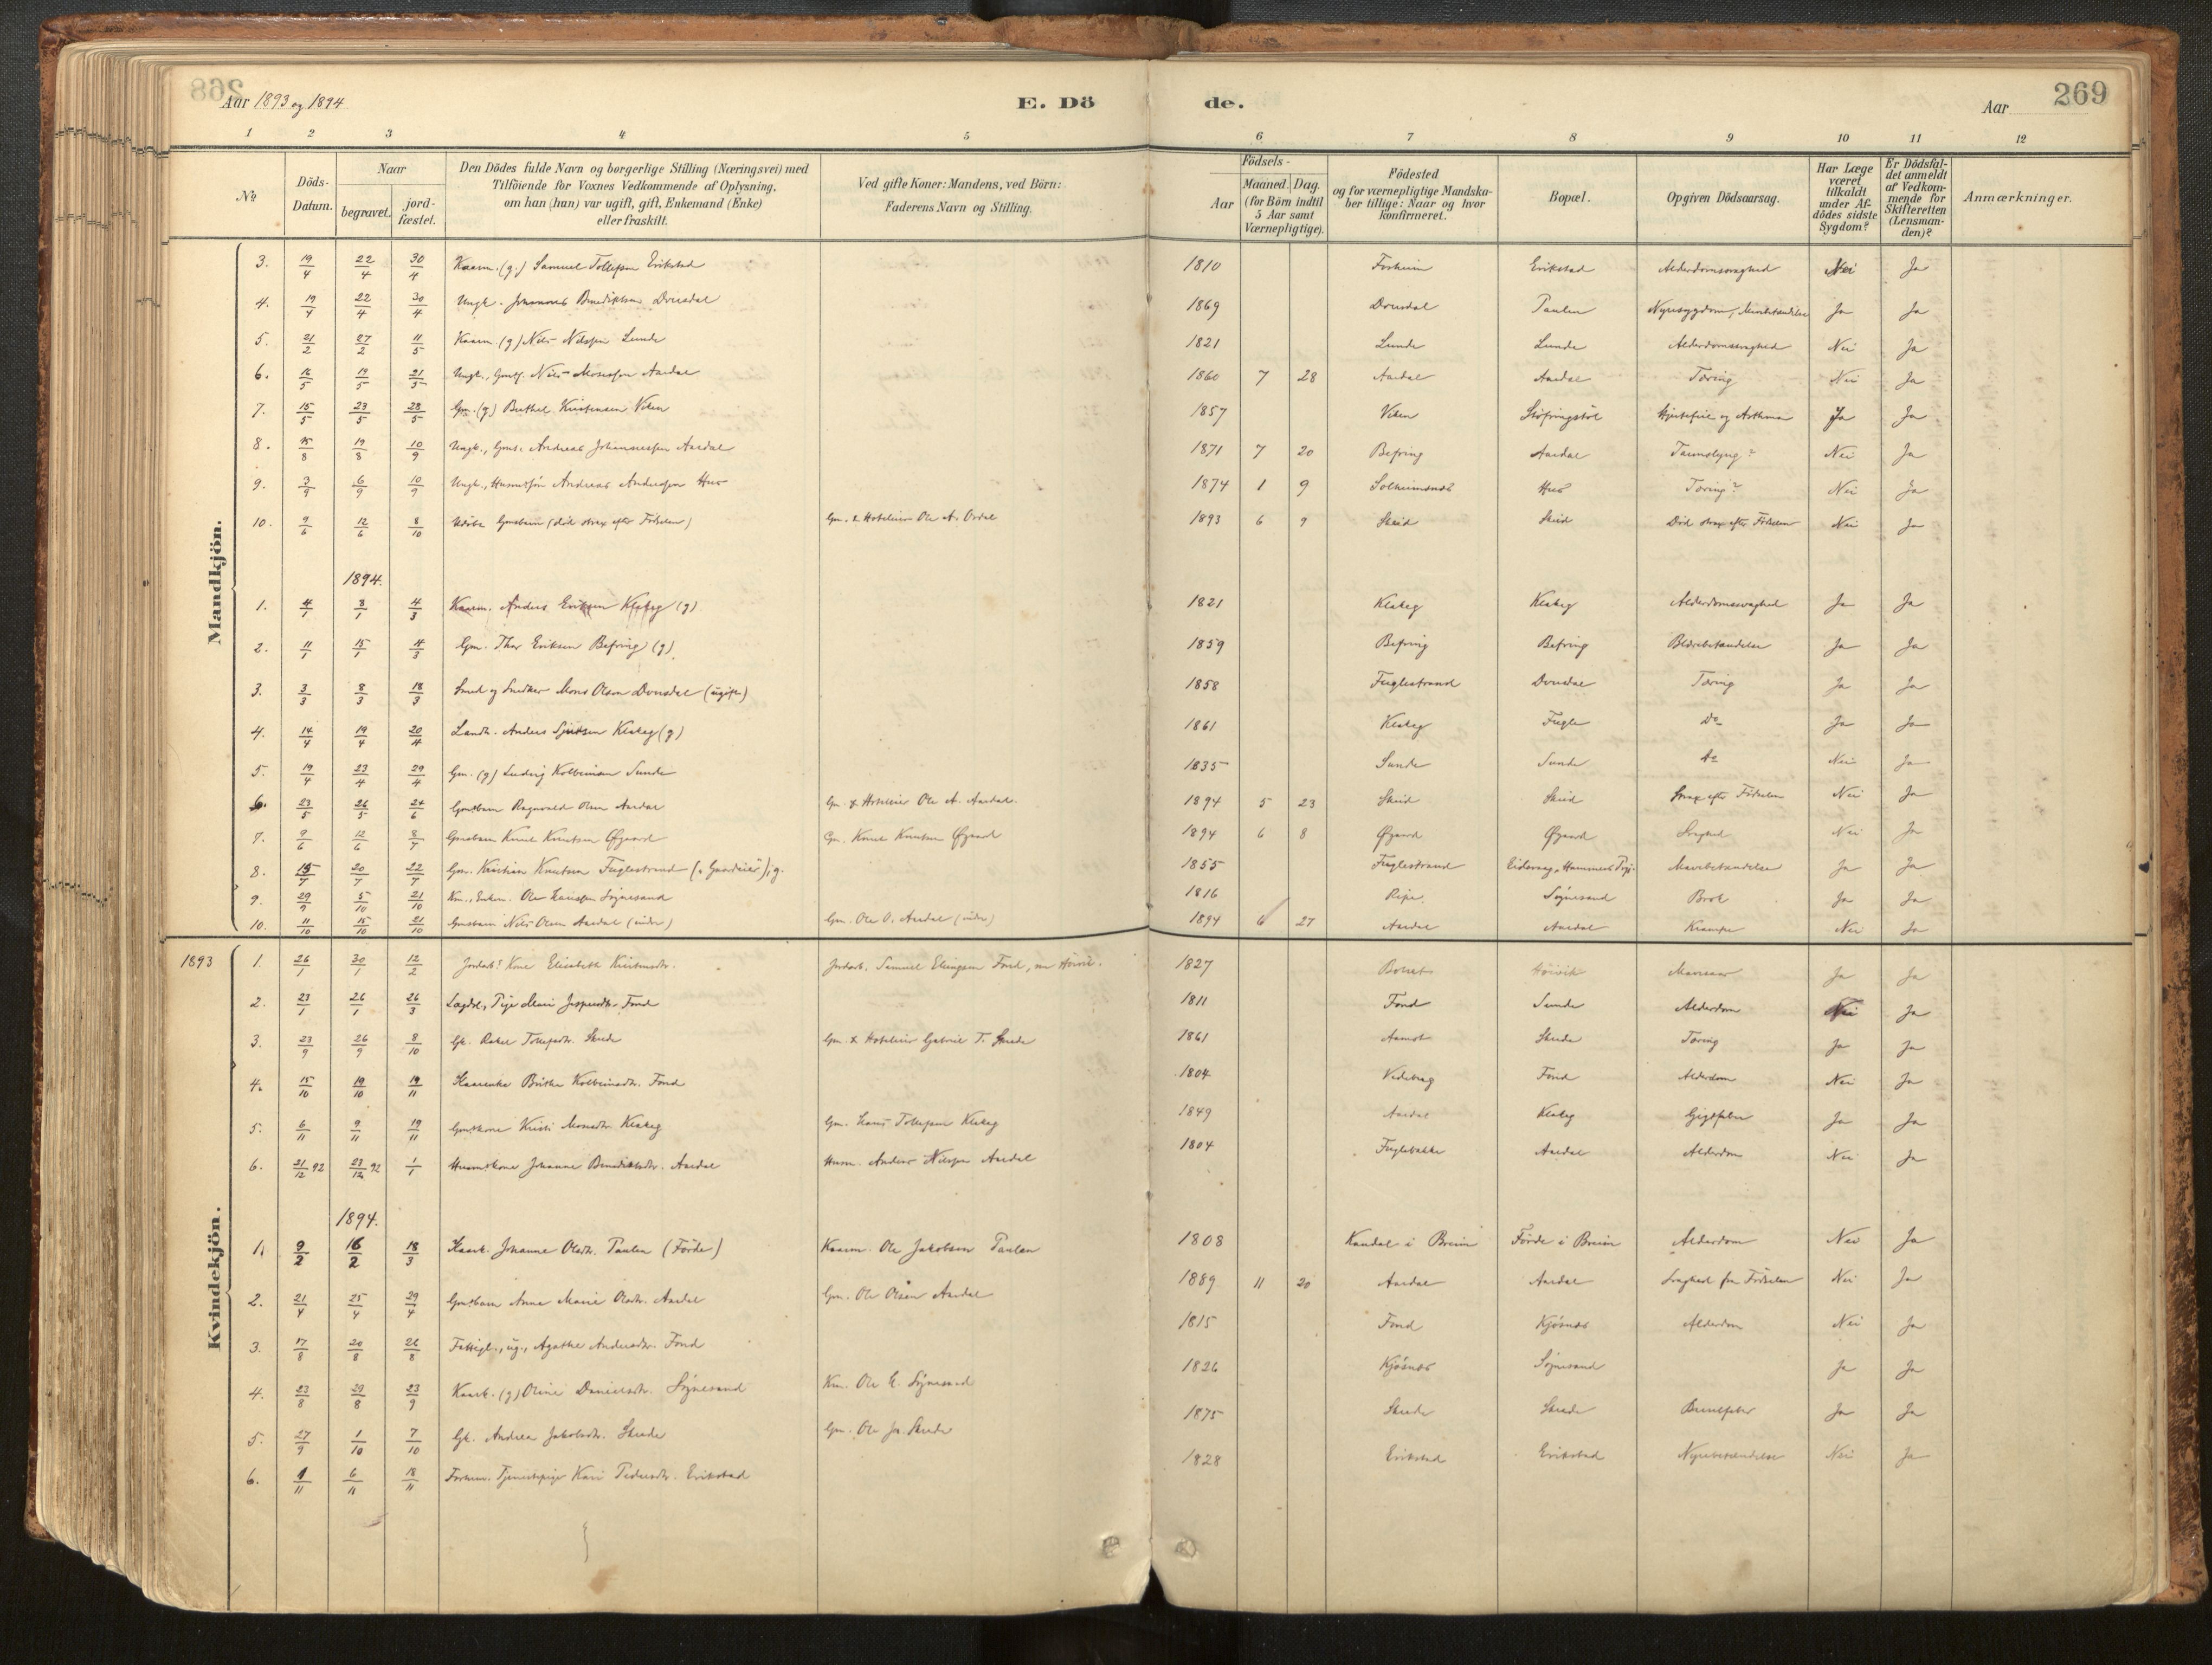 268
Aar 1893 og 1894
E. Dö
de.
Aar
269
1 2 3 4 5 6 7 8 9 10 11 12
No
Döds-Datum.
Naar
begravet.
jord-fæstet.
Den Dödes fulde Navn og borgerlige Stilling (Næringsvei) med
Tilföiende for Voxnes Vedkommende af Oplysning,
om han (hun) var ugift, gift, Enkemand (Enke)
eller fraskilt.
Ved gifte Koner: Mandens, ved Börn:
Faderens Navn og Stilling.
Födsels-
Aar
Maaned. Dag.
(for Börn indtil
5 Aar samt
Værnepligtige).
Födested
og for værnepligtige Mandska-
ber tillige: Naar og hvor
konfirmeret.
Bopæl.
Opgiven Dödsaarsag.
Har Læge
været
tilkaldt
under Af-
dödes sidste
Sygdom?
Er Dödsfal-
det anmeldt
af Vedkom-
mende for
Skifteretten
(Lensman-
den)?
Anmærkninger.
Mandkjön.
3. 19/4 22/4 30/4 Kaarm. (g.) Samuel Tollefsen Erikstad 1810 Forheim Erikstad Alderdomssvaghed Nei Ja
4. 19/4 22/4 30/4 Ungk. Johannes Benediktsen Dvergsdal 1869 Paulen Nyresygdom, Ja Ja
5. 21/2 27/2 11/5 Kaarm. (g) Nils Nilssen Lunde 1821 Lunde Lunde Alderdomssvaghed Nei Ja
6. 16/5 19/5 21/5 Ungk., Nils Mosessen Aardal 1860 7 28 Aardal Aardal Tæring Nei Ja
7. 15/5 23/5 28/5 Gm. (g) Berthel Kristensen Viken 1857 Viken Hjertefeil og Asthma Ja Ja
8. 15/8 19/8 10/9 Ungk., Gmds. Andreas Johannessen Aardal 1871 7 20 Befring Aardal Nei Ja
9. 3/9 6/9 10/9 Ungk., Husmdsøn Andreas Andersen Hus 1874 1 9 Solheimsnes Hus Tæring? Nei Ja
10. 9/6 12/6 8/10 Udøbt Gmdbarn (død strax efter Fødselen) Gm. & Hoteleier Ole A. Ordal 1893 6 9 Skeid Skeid Død strax efter Fødselen Nei Ja
1894.
1. 4/1 8/1 4/3 Kaarm. Anders Eriksen Klakeg (g) 1821 Klakeg Klakeg Alderdomssvaghed Ja Ja
2. 11/1 15/1 4/3 Gm. Thor Eriksen Befring (g) 1859 Befring Befring Blærebetændelse Ja Ja
3. 3/3 8/3 18/3 Smed og Snedker Mons Olsen Dvergsdal (ugift) 1858 Fuglestrand Tæring Ja Ja
4. 14/4 19/4 20/4 Landh. Anders Sjursen Klakeg (g) 1861 Klakeg Fugle Do Ja Ja
5. 19/4 23/4 29/4 Gm. (g) Ludvig Kolbeinsen Sunde 1835 Sunde Sunde Nei Ja
6. 23/5 26/5 24/6 Gmdbarn Ragnvald Olsen Aardal Gm. & Hoteleier Ole A. Aardal. 1894 5 23 Skeid Skeid Strax efter Fødselen Nei Ja
7. 9/6 12/6 8/7 Gmdbarn Knut Knutsen Øygaard Gm. Knut Knutsen Øygaard 1894 6 8 Øygaard Øygaard Svaghed Nei Ja
8. 15/7 20/7 22/7 Gm. Kristian Knutsen Fuglestrand ("Gaardeier"), g. 1855 Fuglestrand Eidsvaag, Hammers Pgj. Mavebetændelse Ja Ja
9. 29/9 5/10 21/10 Km., Enkem. Ole Hanssen Søgnesand 1816 Ripe Søgnesand Brok Ja Ja
10. 11/10 15/10 21/10 Gmdbarn Nils Olsen Aardal (indre) Gm. Ole O. Aardal (indre) 1894 6 27 Aardal Aardal Krampe Nei Ja
Kvindekjön.
1893 1. 26/1 30/1 12/2 Kone Elisabeth Jordarb. Samuel Elingsen Fond, nu Høivik. 1827 Bolset Høivik Ja Ja
2. 23/1 26/1 26/3 Lægdsl., Pige Mari Jespersdtr. Fond 1811 Fond Sunde Alderdom Nei Ja
3. 23/9 26/9 8/10 Gk. Rakel Tollefsdtr. Skrede Gm. & Hoteleier Gabriel T. Skrede 1861 Aamot Skrede Tæring Ja Ja
4. 15/10 19/10 19/11 Kaarenke Brithe Kolbeinsdtr. Fond 1804 Fond Alderdom Nei Ja
5. 6/11 9/11 19/11 Gmdskone Kristi Monsdtr. Klakeg Gm. Hans Tollefsen Klakeg 1849 Aardal Klakeg Gigtfeber Ja Ja
6. 21/12 92 23/12 92 1/1 Husmdskone Johanne Benediktsdtr. Aardal Husm. Anders Nilssen Aardal 1804 Fuglebakke Aardal Alderdom Nei Ja
1894.
1. 9/2 16/2 18/3 Kaark. Johanne Olsdtr. Paulen (Førde) Kaarm. Ole Jakobsen Paulen 1808 Kandal i Breim Førde i Breim Alderdom Nei Ja
2. 21/4 25/4 29/4 Gmdsbarn Anna Marie Olsdtr. Aardal Gm. Ole Olsen Aardal 1889 11 20 Aardal Aardal Svaghed fra Fødselen Nei Ja
3. 17/8 20/8 26/8 Fattigl., ug., Agathe Andersdtr. Fond 1815 Fond Kjøsnes Alderdom Nei Ja
4. 23/8 29/8 23/9 Kaark. (g) Oline Danielsdtr. Søgnesand Km. Ole H. Søgnesand 1826 Kjøsnes Søgnesand Ja Ja
5. 27/9 1/10 7/10 Gk. Andrea Jakobsdtr. Skrede Gm. Ole Js. Skrede 1875 Skrede Skrede Barselfeber Ja Ja
6. 1/11 6/11 18/11 Forhenv. Tjenestepige Kari Pedersdtr. Erikstad 1828 Erikstad Erikstad Nyrebetændelse Nei Ja